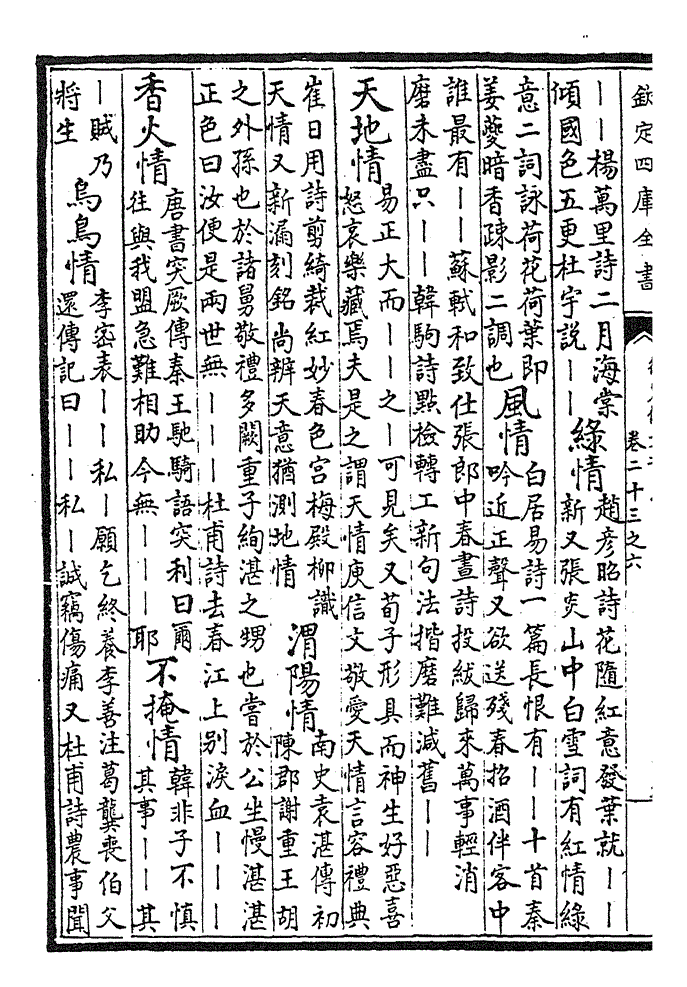 欽定四庫全書
卷二十三之六
｜｜楊萬里詩二月海棠
傾國色五更杜宇說｜｜
綠情
趙彦昭詩花隨紅意發葉就｜｜
新又張炎山中白雪詞有紅情綠
意二詞詠荷花荷葉即
姜夔暗香疎影二調也
風情
白居易詩一篇長恨有｜｜十首秦
吟近正聲又欲送殘春招酒伴客中
誰最有｜｜蘇軾和致仕張郎中春晝詩投紱歸來萬事輕消
磨未盡只｜｜韓駒詩點檢轉工新句法揩磨難減舊｜｜
天地情
易正大而｜｜之｜可見矣又荀子形具而神生好惡喜
怒哀樂藏焉夫是之謂天情庾信文敬愛天情言容禮典
崔日用詩剪綺裁紅妙春色宮梅殿柳識
天情又新漏刻銘尚辨天意猶測地情
渭陽情
南史袁湛傳初
陳郡謝重王胡
之外孫也於諸舅敬禮多闕重子絢湛之甥也嘗於公坐慢湛湛
正色曰汝便是兩世無｜｜｜｜杜甫詩去春江上別淚血｜｜｜
香火情
唐書突厥傳秦王馳騎語突利曰爾
往與我盟急難相助今無｜｜｜耶
不掩情
韓非子不慎
其事｜｜其
｜賦乃
將生
烏鳥情
李密表｜｜私｜願乞終養李善注葛龔喪伯父
還傳記曰｜｜私｜誠竊傷痛又杜甫詩農事聞